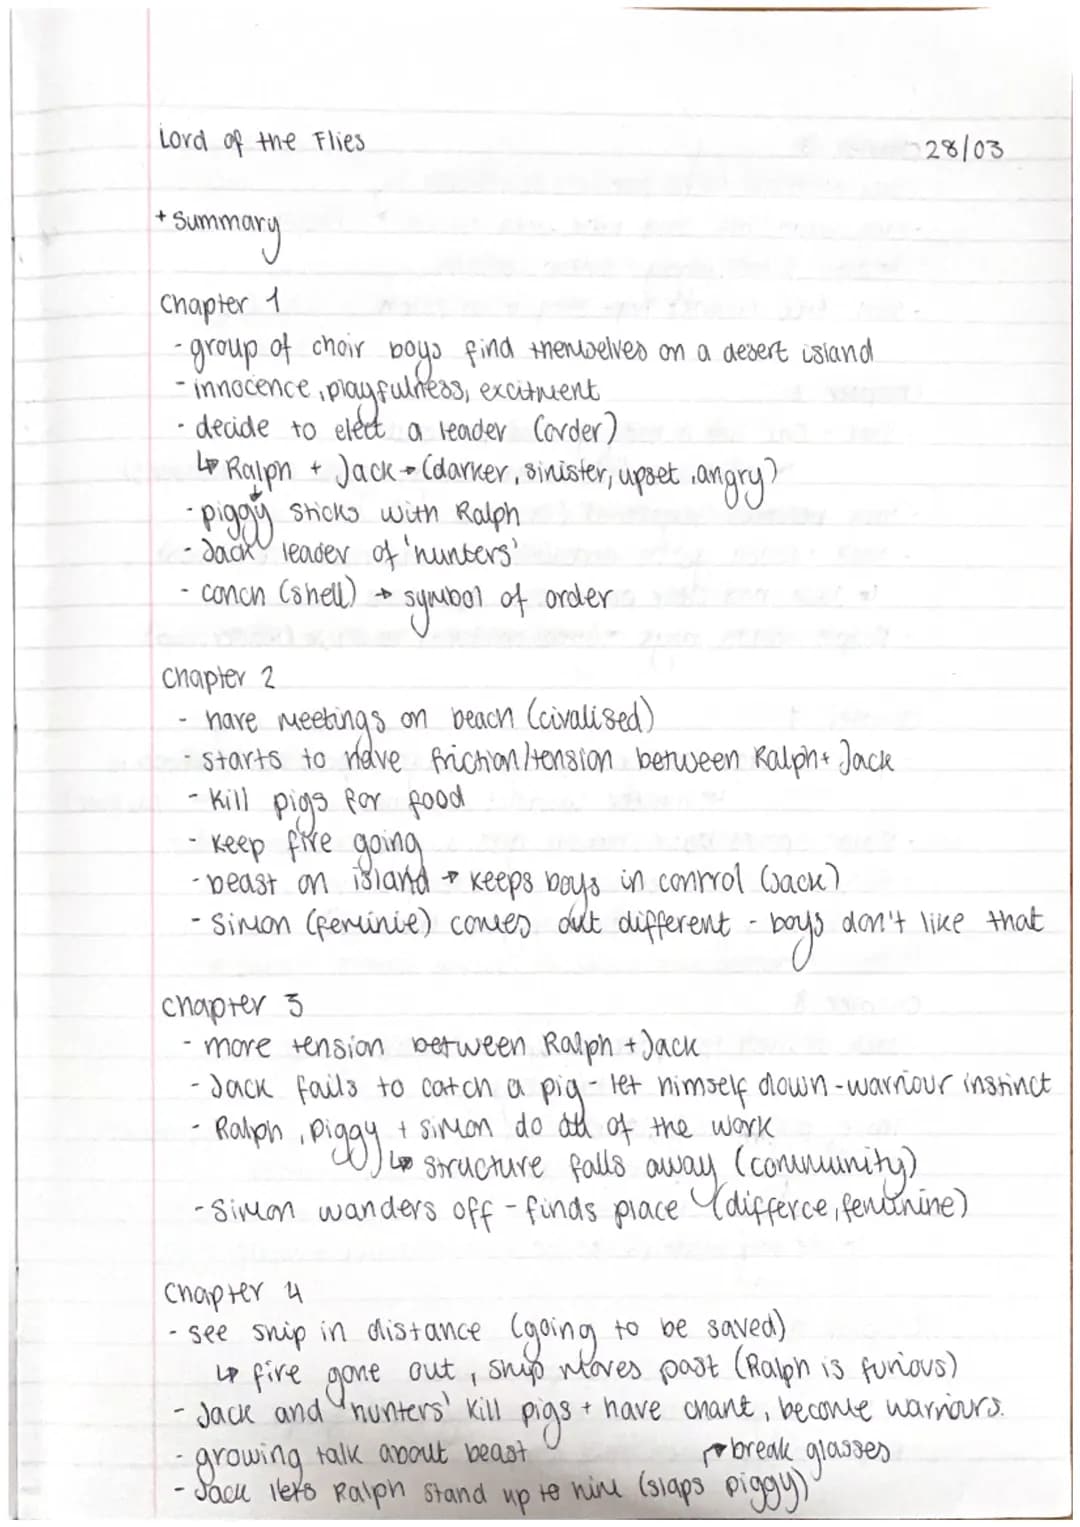 Lord of the Flies 28/03
+ Summary
Chapter 1
- group of choir boys find themselves on a desert island
- innocence, playfulness, excitment
- decide to elect a leader (order)
↳ Ralph + Jack → (darker, sinister, upset, angry)
- piggy sticks with Ralph
- Jack leader of 'hunters'
- conch (shell) → symbol of order
Chapter 2
- have meetings on beach (civalised)
- starts to have friction/tension between Ralph + Jack
- Kill pigs for food
- keep fire going
- beast on island → keeps boys in control (Jack)
- Simon (feminie) comes out different - boys don't like that
Chapter 3
- more tension between Ralph + Jack
- Jack fails to catch a pig - let himself down - warriour instinct
- Ralph, Piggy + simon do all of the work
↳ structure falls away (community)
- Simon wanders off - finds place (differce, feminine)
Chapter 4
- see ship in distance (going to be saved)
↳ fire gone out, ship moves past (Ralph is furious)
- Jack and 'hunters' kill pigs + have chant, become warriours.
- growing talk about beast → break glasses
- Jack lets Ralph stand up to him (slaps piggy)